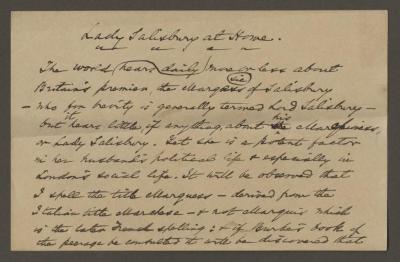 Lady Salisbury at Home.
The world hears daily more or less about
Britain's premier, the Marquess of Salisbury
sic
- who for brevity is generally termed Lord Salisbury -
but it hears little, if anything, about his Marchioness,
or Lady Salisbury. Yet she is a potent factor
in her husband's political life & especially in
London's social life. It will be observed that
I spell the title Marquess - derived from the
Italian title Marchese - & not Marquis which
is the later French spelling: & if Burke's book of
the peerage be consulted it will be discovered that